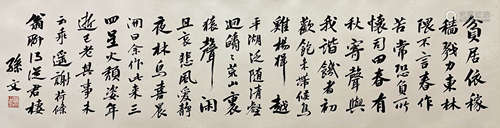 貧居依稼
穡戮力東林
隈不言春作
苦常恐負所
懷司田眷有
秋寄聲與
我諧饑者初
歡飽束帶候鳴
雞揚楫越
平湖泛隨清壑
迴鬱鬱荒山裏
猿聲閑
且哀悲風愛静
夜林鳥喜晨
開曰余作此来三
四星火頹姿年
逝已老其事未
云乖遥謝荷蓧
翁聊得從君棲
孫文